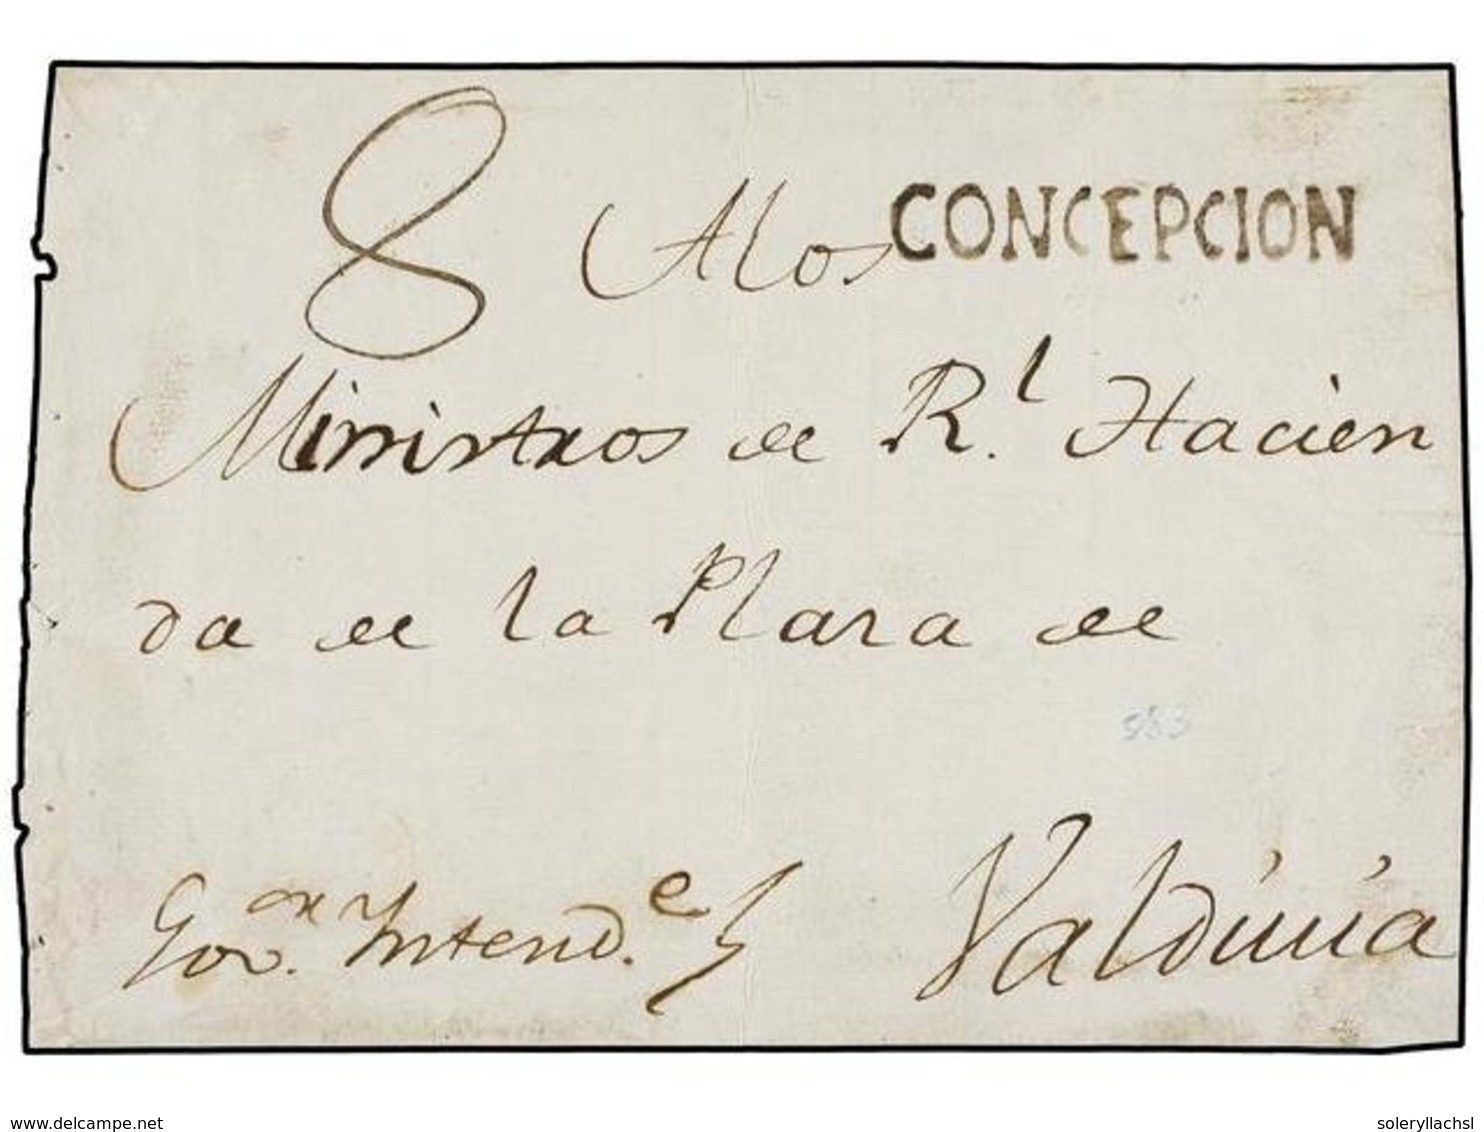 8
Alos CONCEPCION
Ministros de R.l Hacien
da de la Plaza de
983
Gov.or Intend.e
Valdivia
delcampe.net
soleryllachsl